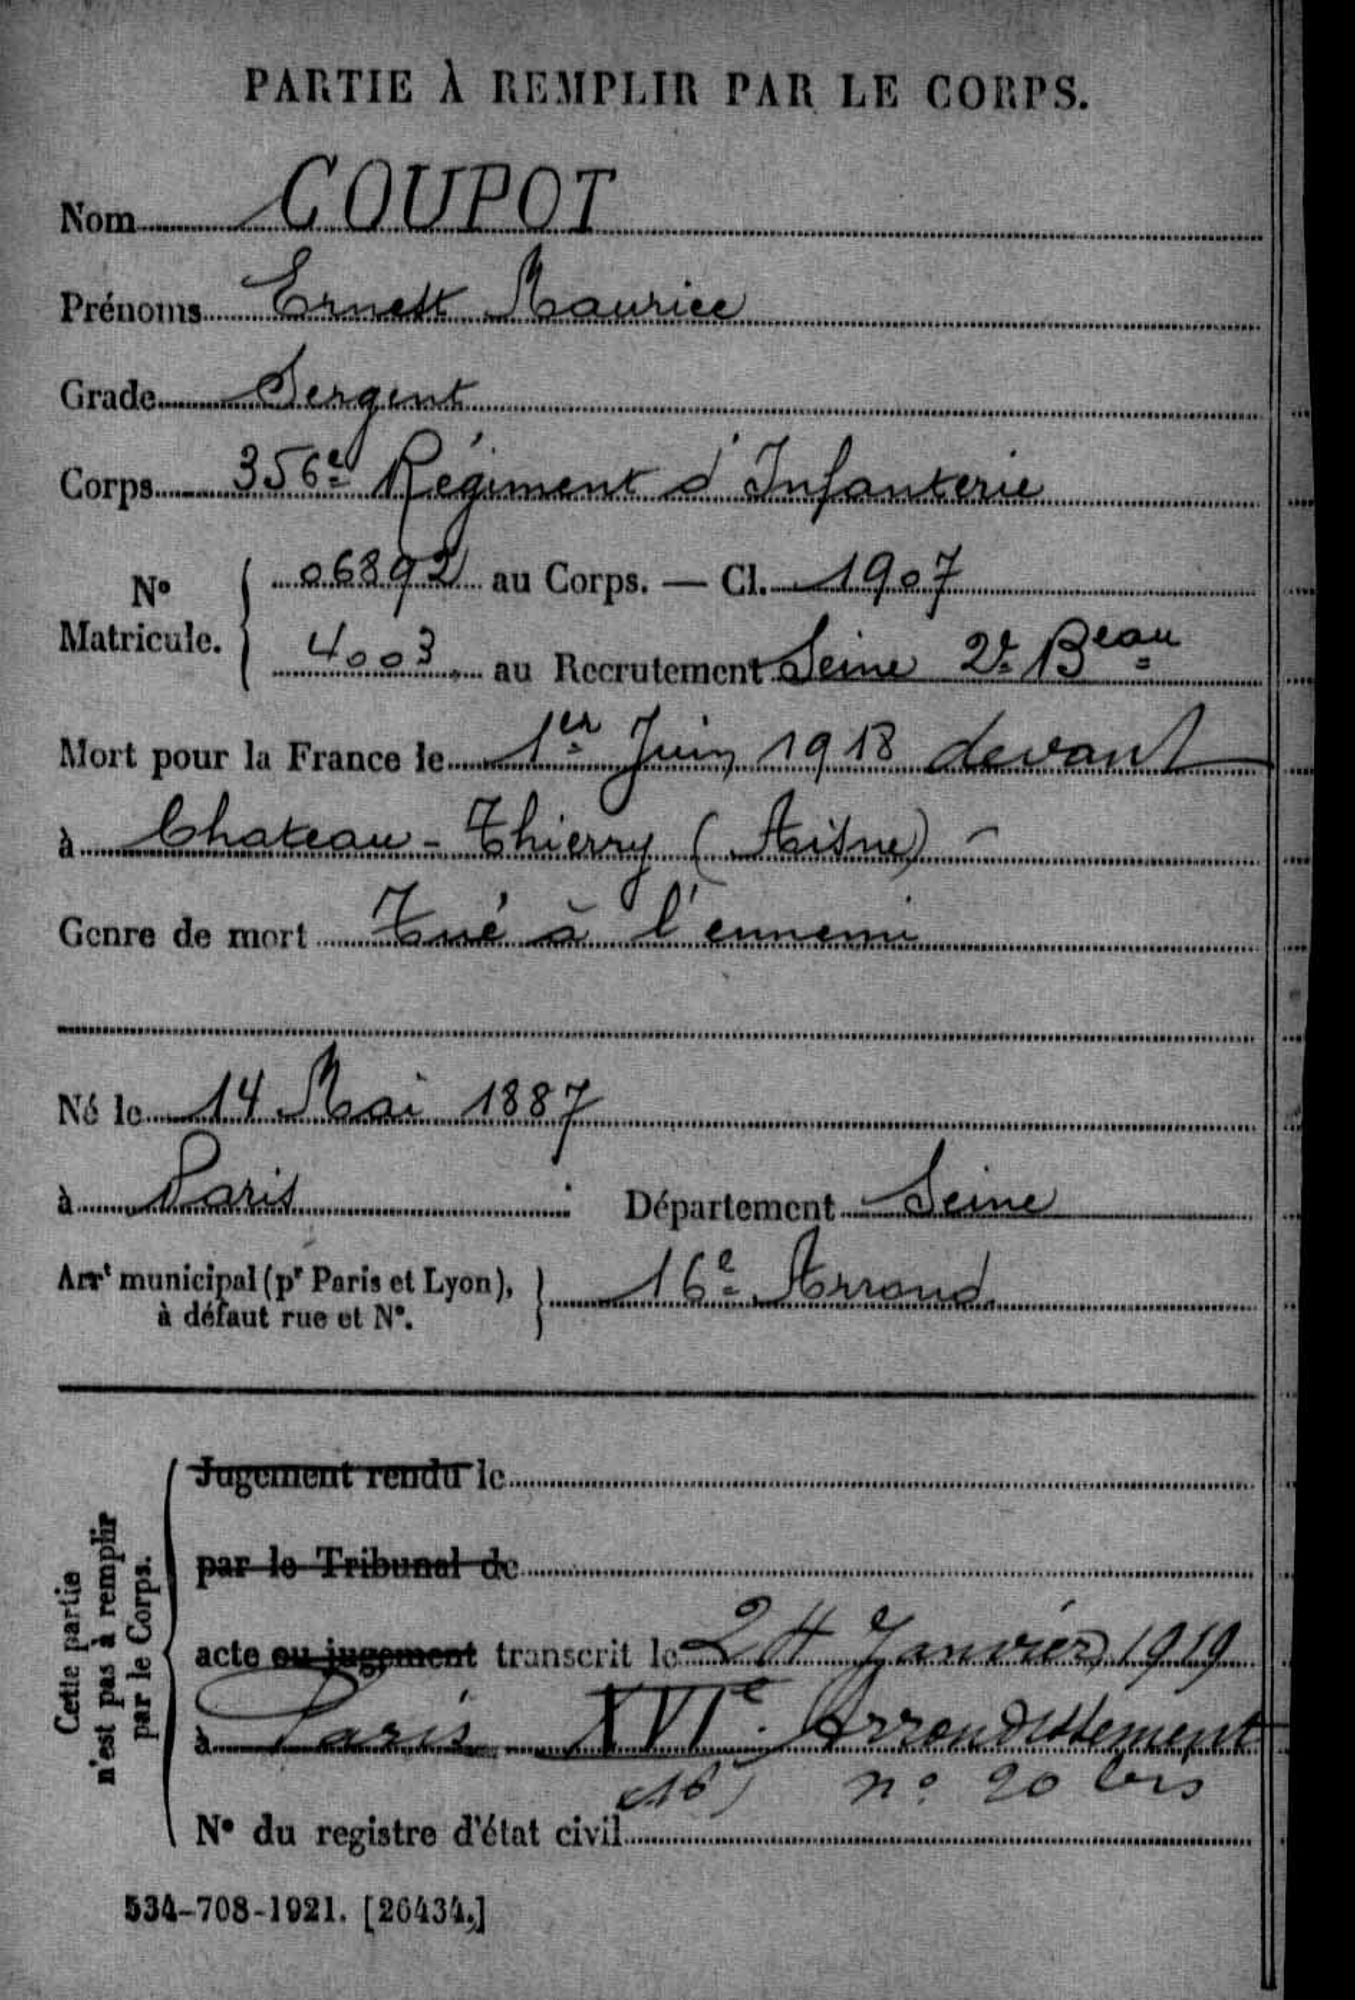 PARTIE À REMPLIR PAR LE CORPS.
Nom COUPOT
Prénoms Ernest Maurice
Grade Sergent
Corps 356e Régiment d'Infanterie
No Matricule. { 06892 au Corps. — Cl. 1907
4003 au Recrutement Seine 2e Beau
Mort pour la France le 1er Juin 1918 devant
à Chateau-Thierry (Aisne)
Genre de mort Tué à l'ennemi
Né le 14 Mai 1887
à Paris Département Seine
Arrt municipal (pr Paris et Lyon), à défaut rue et No. } 16e Arrond.
Cette partie n'est pas à remplir par le Corps.
Jugement rendu le
par le Tribunal de
acte ou jugement transcrit le 24 Janvier 1919
à Paris XVIe Arrondissement
(16) no 20 bis
No du registre d'état civil
534-708-1921. [26434.]